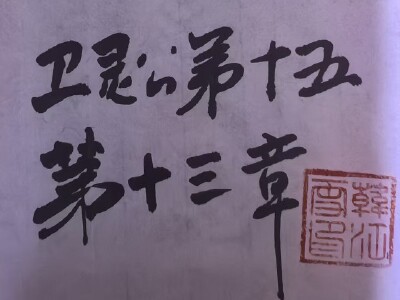 卫灵公第十五
第十三章